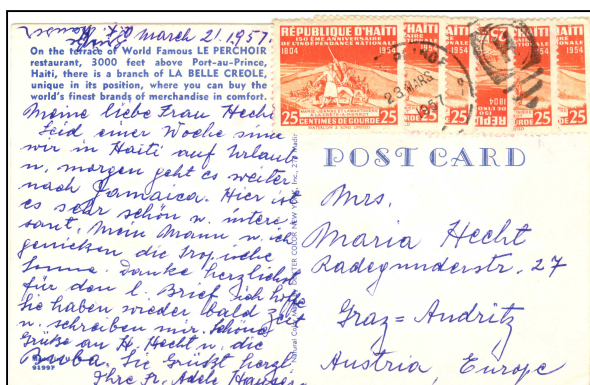 March 21. 1957.
On the terrace of World Famous LE PERCHOIR
restaurant, 3000 feet above Port-au-Prince,
Haiti, there is a branch of LA BELLE CREOLE,
unique in its position, where you can buy the
world's finest brands of merchandise in comfort.
Meine liebe Frau Hecht
Seid einer Woche sind
wir in Haiti auf Urlaub
u. morgen geht es weiter
nach Jamaica. Hier ist
es sehr schön u. interes
sant. Mein Mann u. ich
geniessen die tropische
Sonne. Danke herzlichst
für den l. Brief. Ich hoffe
Sie haben wieder bald Zeit
u. schreiben mir. Schöne
Grüße an H. Hecht u. die
Sie grüßt herzl.
Ihre Fr. Adele
91997
Natural Color
NEW YORK, Inc.,
RÉPUBLIQUE D'HAÏTI
150 ÈME ANNIVERSAIRE
DE L'INDÉPENDANCE NATIONALE
1804 1954
25 CENTIMES DE GOURDE 25
1954
25
1954
25
1954
25
1954
25
28 MARS
1957
POST CARD
Mrs.
Maria Hecht
Radegunderstr. 27
Graz=Andritz
Austria, Europe